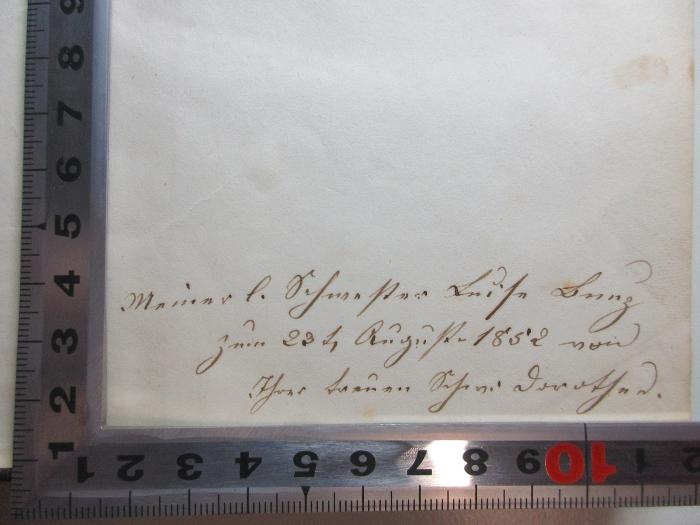 Meiner l. Schwester Luise Bunz
zum 23t, August 1852 von
Ihrer treuen Schw: Dorothea.
9
8
7
6
5
4
3
2
1
1 2 3 4 5 6 7 8 9 10 1 2